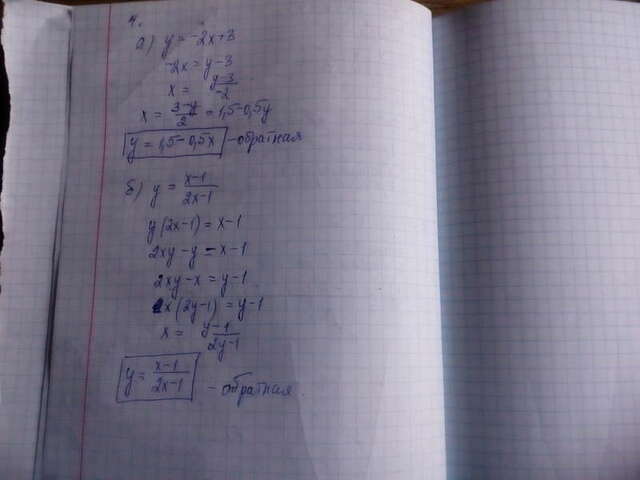 4.
а) y = -2x+3
-2x = y-3
x = y-3/-2
x = 3-y/2 = 1,5-0,5y
y = 1,5-0,5x - обратная
б) y = x-1/2x-1
y(2x-1) = x-1
2xy-y = x-1
2xy-x = y-1
x(2y-1) = y-1
x = y-1/2y-1
y = x-1/2x-1 - обратная